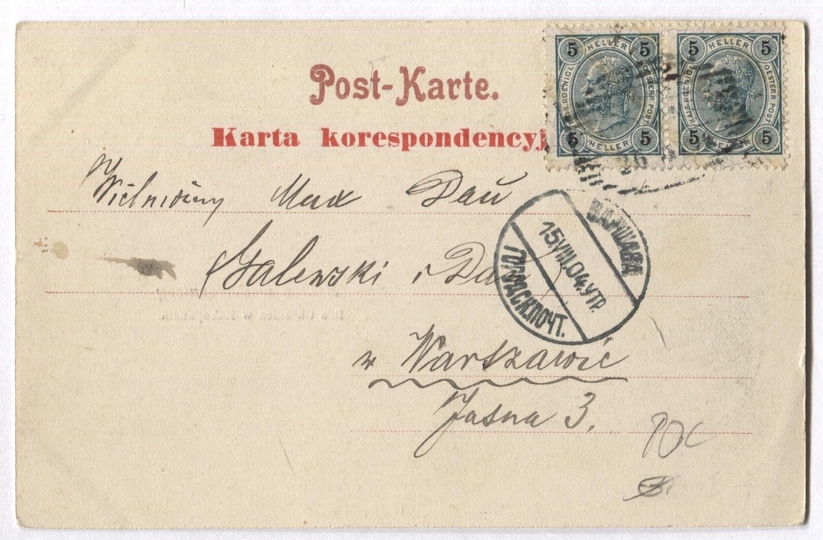 Post-Karte.
Karta korespondencyj
5 HELLER 5 5 HELLER 5
5 HELLER 5 5 HELLER 5
Wielmożny Max Dau
Galewski i Dau
ВАРШАВА
15.VIII.04.УТР.
ПОЧТ.
w Warszawie
Jasna 3.